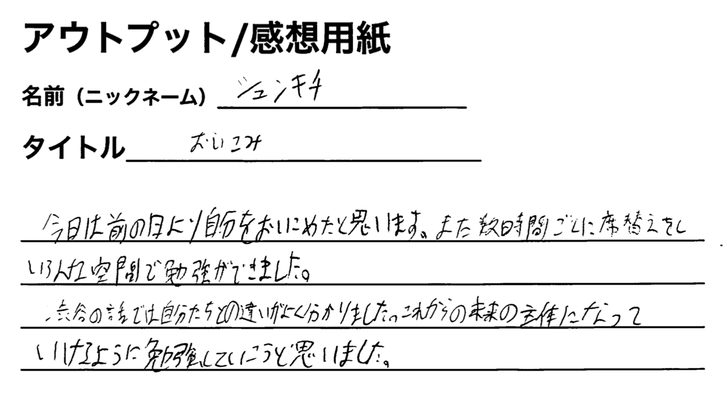 アウトプット/感想用紙
名前（ニックネーム） ジュンキチ
タイトル おいこみ
今日は前の日より自分をおいこめたと思います。また数時間ごとに席替えをし
いろんな空間で勉強ができました。
渋谷の話では自分たちとの違いがよく分かりました。これからの未来の主体になって
いけるように勉強していこうと思いました。